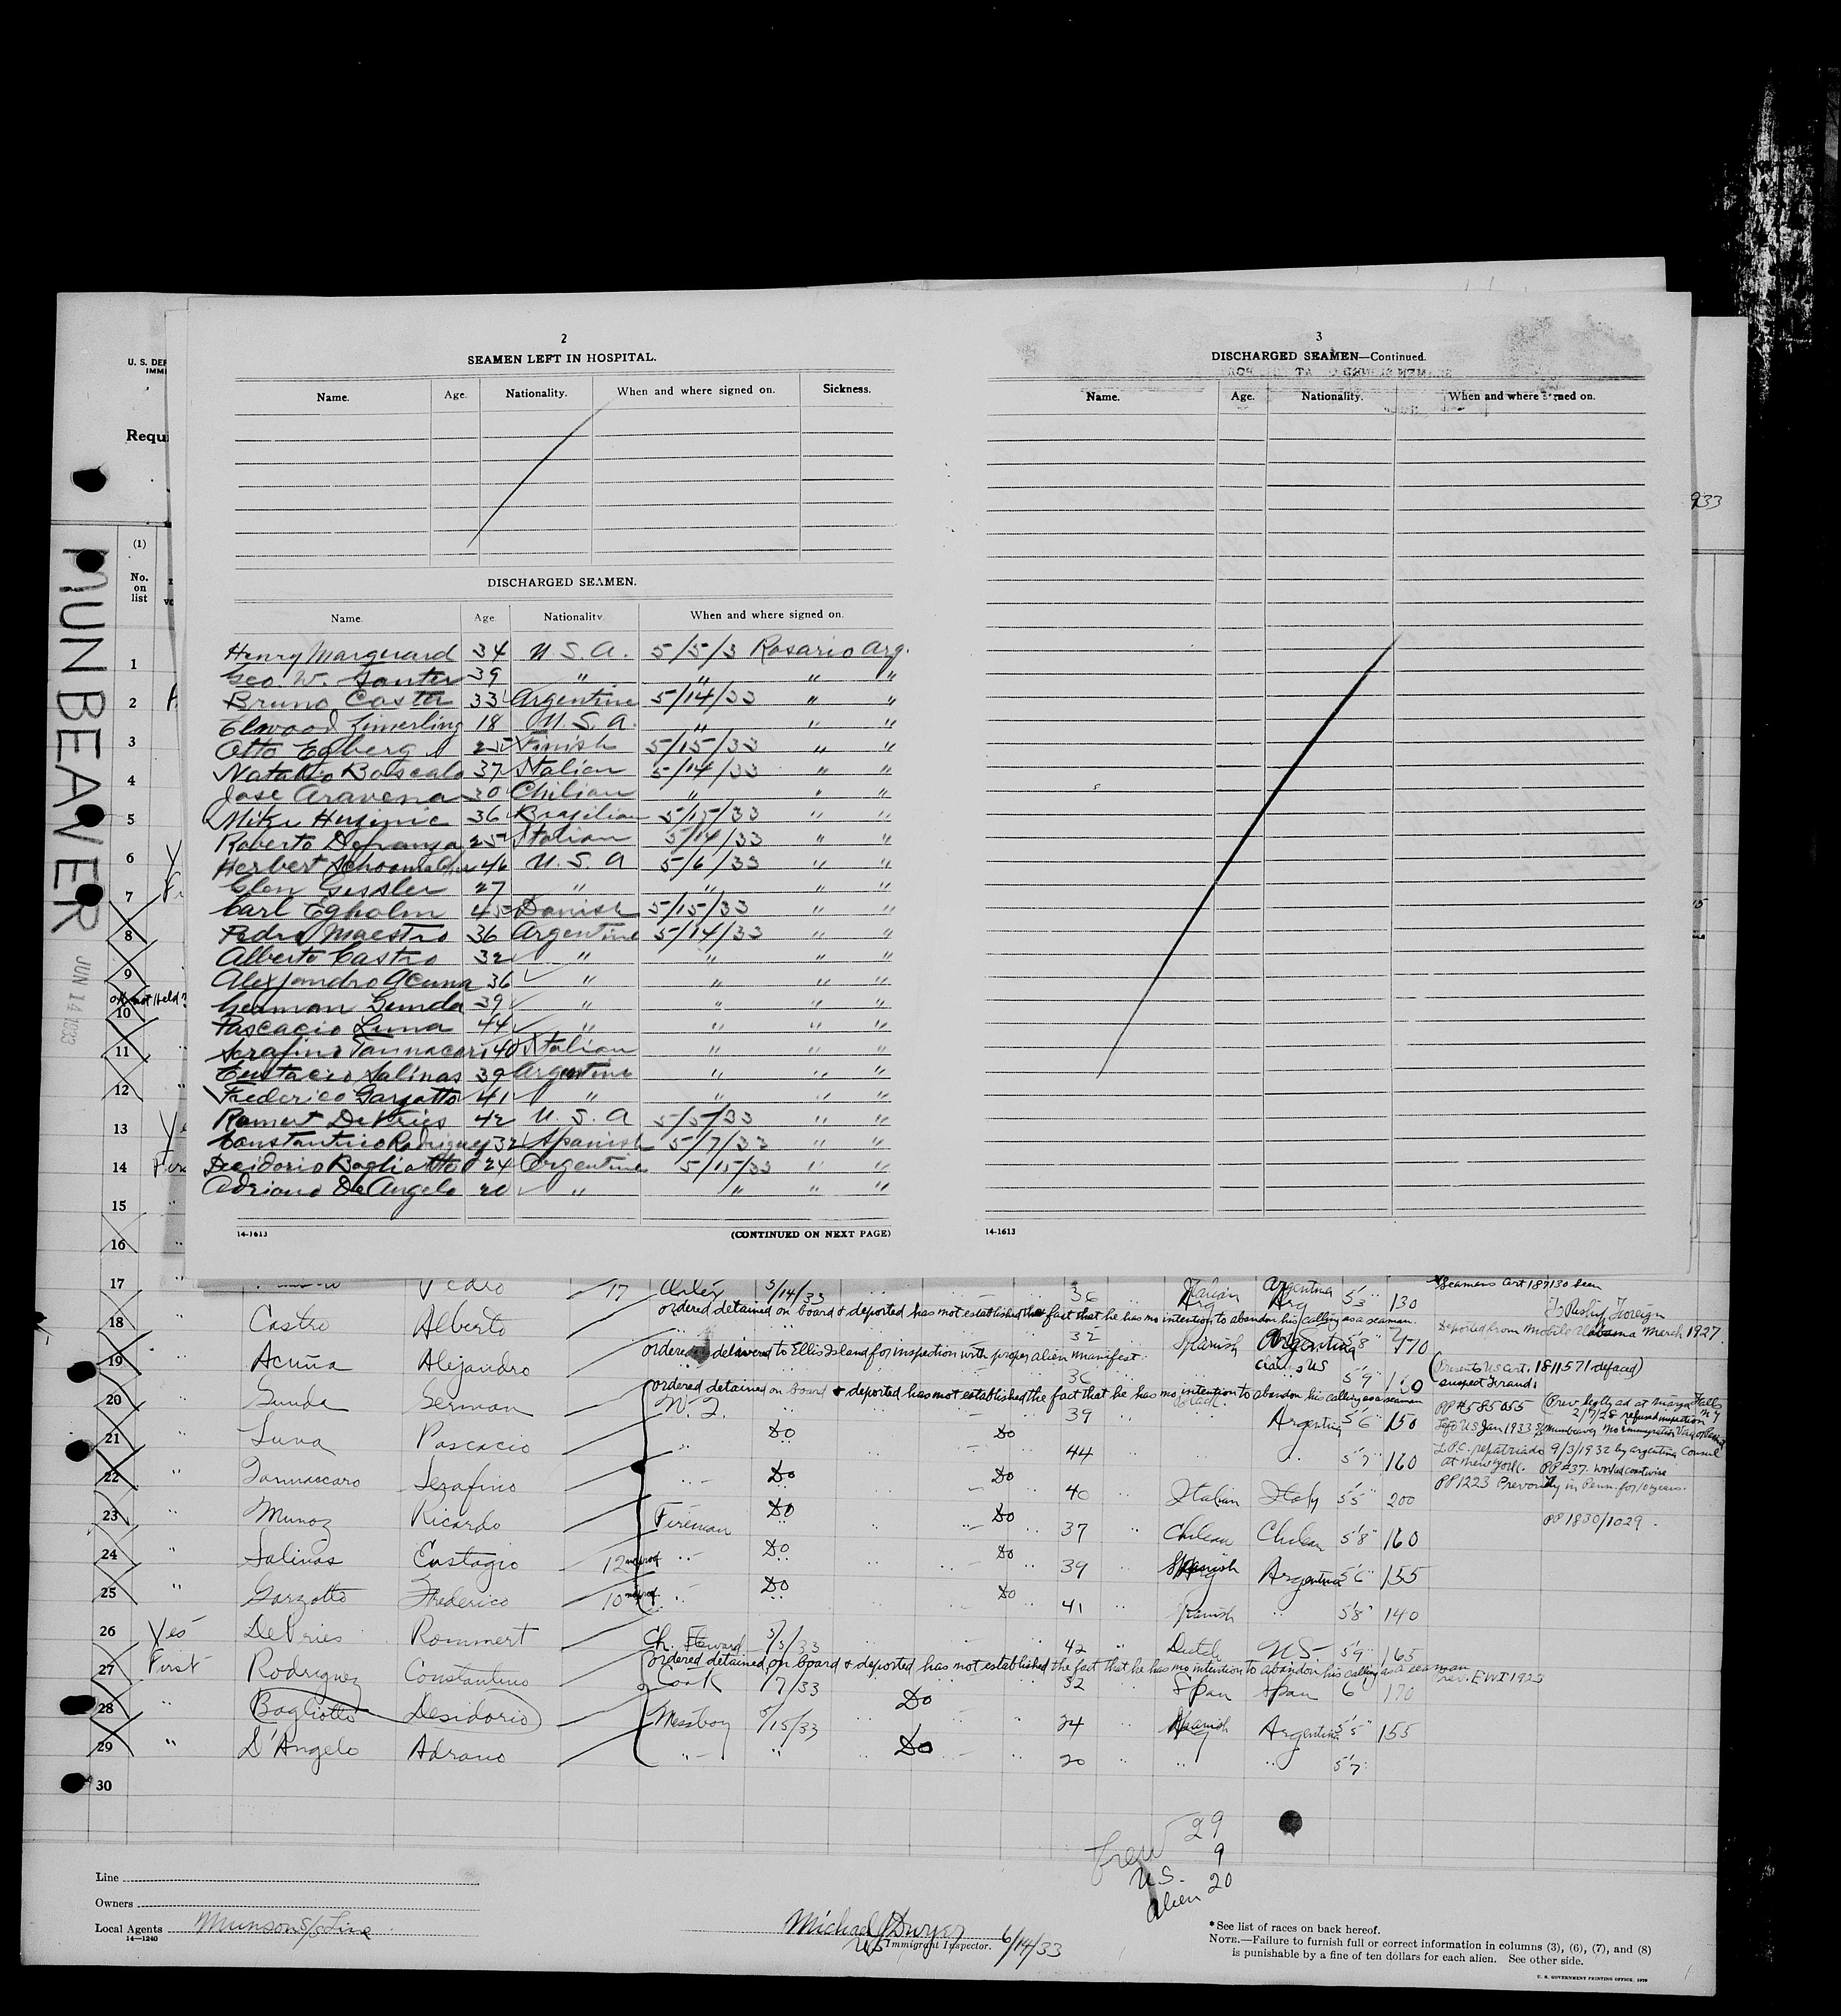 2
SEAMEN LEFT IN HOSPITAL.
Name. Age. Nationality. When and where signed on. Sickness.
DISCHARGED SEAMEN.
Name. Age. Nationality. When and where signed on.
Henry Marquard 34 U.S.A. 5/5/3 Rosario Arg.
Geo. W. 39 " " " "
Bruno Costa 33 Argentine 5/14/33 " "
Elwood Zimerling 18 U.S.A. " " "
Otto Egberg 25 Finish 5/15/33 " "
Natalio 37 Italian 5/14/33 " "
Jose Aravena 30 Chilian " " "
Mike 36 Brazilian 5/15/33 " "
Roberto 25 Italian 5/14/33 " "
Herbert 46 U.S.A 5/6/33 " "
Glen Gessler 27 " " " "
Carl Egholm 45 Danish 5/15/33 " "
Pedro Maestro 36 Argentine 5/14/33 " "
Alberto Castro 32 " " " "
Alexjandro Acuna 36 " " " "
German Gunda 39 " " " "
Pascacio Luna 44 " " " "
Serafino Tannacari 40 Italian " " "
Eustacio Salinas 39 Argentine " " "
Frederico Garzatto 41 " " " "
Romert DeVries 42 U.S.A 5/5/33 " "
Constantino Rodriguez 32 Spanish 5/7/33 " "
Desidorio Bagliotto 24 Argentine 5/15/33 " "
Adriano De Angelo 20 " " " "
14-1613 (CONTINUED ON NEXT PAGE)
3
DISCHARGED SEAMEN—Continued.
Name. Age. Nationality. When and where signed on.
14-1613
U. S. DEP
IMMI
Requi
933
MUNBEAVER
JUN 14 1933
(1)
No. on list
1
2
3
4
5
6
7
8
9
not Held
10
11
12
13
14
15
16
17 " Pedro 17 Oiler 5/14/33 36 Italian Argentina 5'3" 130 Seamens Cert 187130 seen
Arg Arg
ordered detained on board & deported has not established the fact that he has no intention to abandon his calling as a seaman.
18 Castro Alberto 32 Spanish Argentina 5'8" 170 Deported from Mobile Alabama March 1927.
ordered delivered to Ellis Island for inspection with proper alien manifest.
claims US
19 " Acuña Alejandro 36 5'9" (Presents US Cert. 1811571 defaced) suspect fraud
ordered detained on board & deported has not established the fact that he has no intention to abandon his calling as a seaman
20 " Gunda German W.T. 39 Black Argentina 5'6" 150 PP #585055
21 " Luna Pascacio " Do Do 44 " " 5'7" 160 L.P.C. repatriado 9/3/1932 by argentine Consul at New York. PP #37.
22 " Tannascaro Serafino " Do Do 40 " Italian Italy 5'5" 200 PP 1223 in Penn. for 10 years.
23 " Munoz Ricardo Fireman Do Do 37 " Chilean Chilean 5'8" 160 PP 1830/1029.
24 " Salinas Eustagio 12 " Do Do 39 Spanish Argentina 5'6" 155
25 " Garzotto Frederico 10 " Do Do 41 Spanish " 5'8" 140
26 Yes DeVries Rommert Ch. Steward 5/5/33 42 " Dutch U.S. 5'9" 165
ordered detained on board & deported has not established the fact that he has no intention to abandon his calling as a seaman
27 First Rodriguez Constantino Cook 5/7/33 32 " Span Span 6' 170 Prev. EWI 1923
28 " Bagliotto Desidorio Messboy 5/15/33 Do " 24 " Spanish Argentina 5'5" 155
29 " D'Angelo Adrano " " Do " 20 " " " 5'7"
30
Crew 29
U.S. 9
Alien 20
Line
Owners
Local Agents Munson S/S Line
14—1240
Michael J Dwyer 6/14/33
US Immigrant Inspector.
* See list of races on back hereof.
NOTE.—Failure to furnish full or correct information in columns (3), (6), (7), and (8)
is punishable by a fine of ten dollars for each alien. See other side.
U. S. GOVERNMENT PRINTING OFFICE